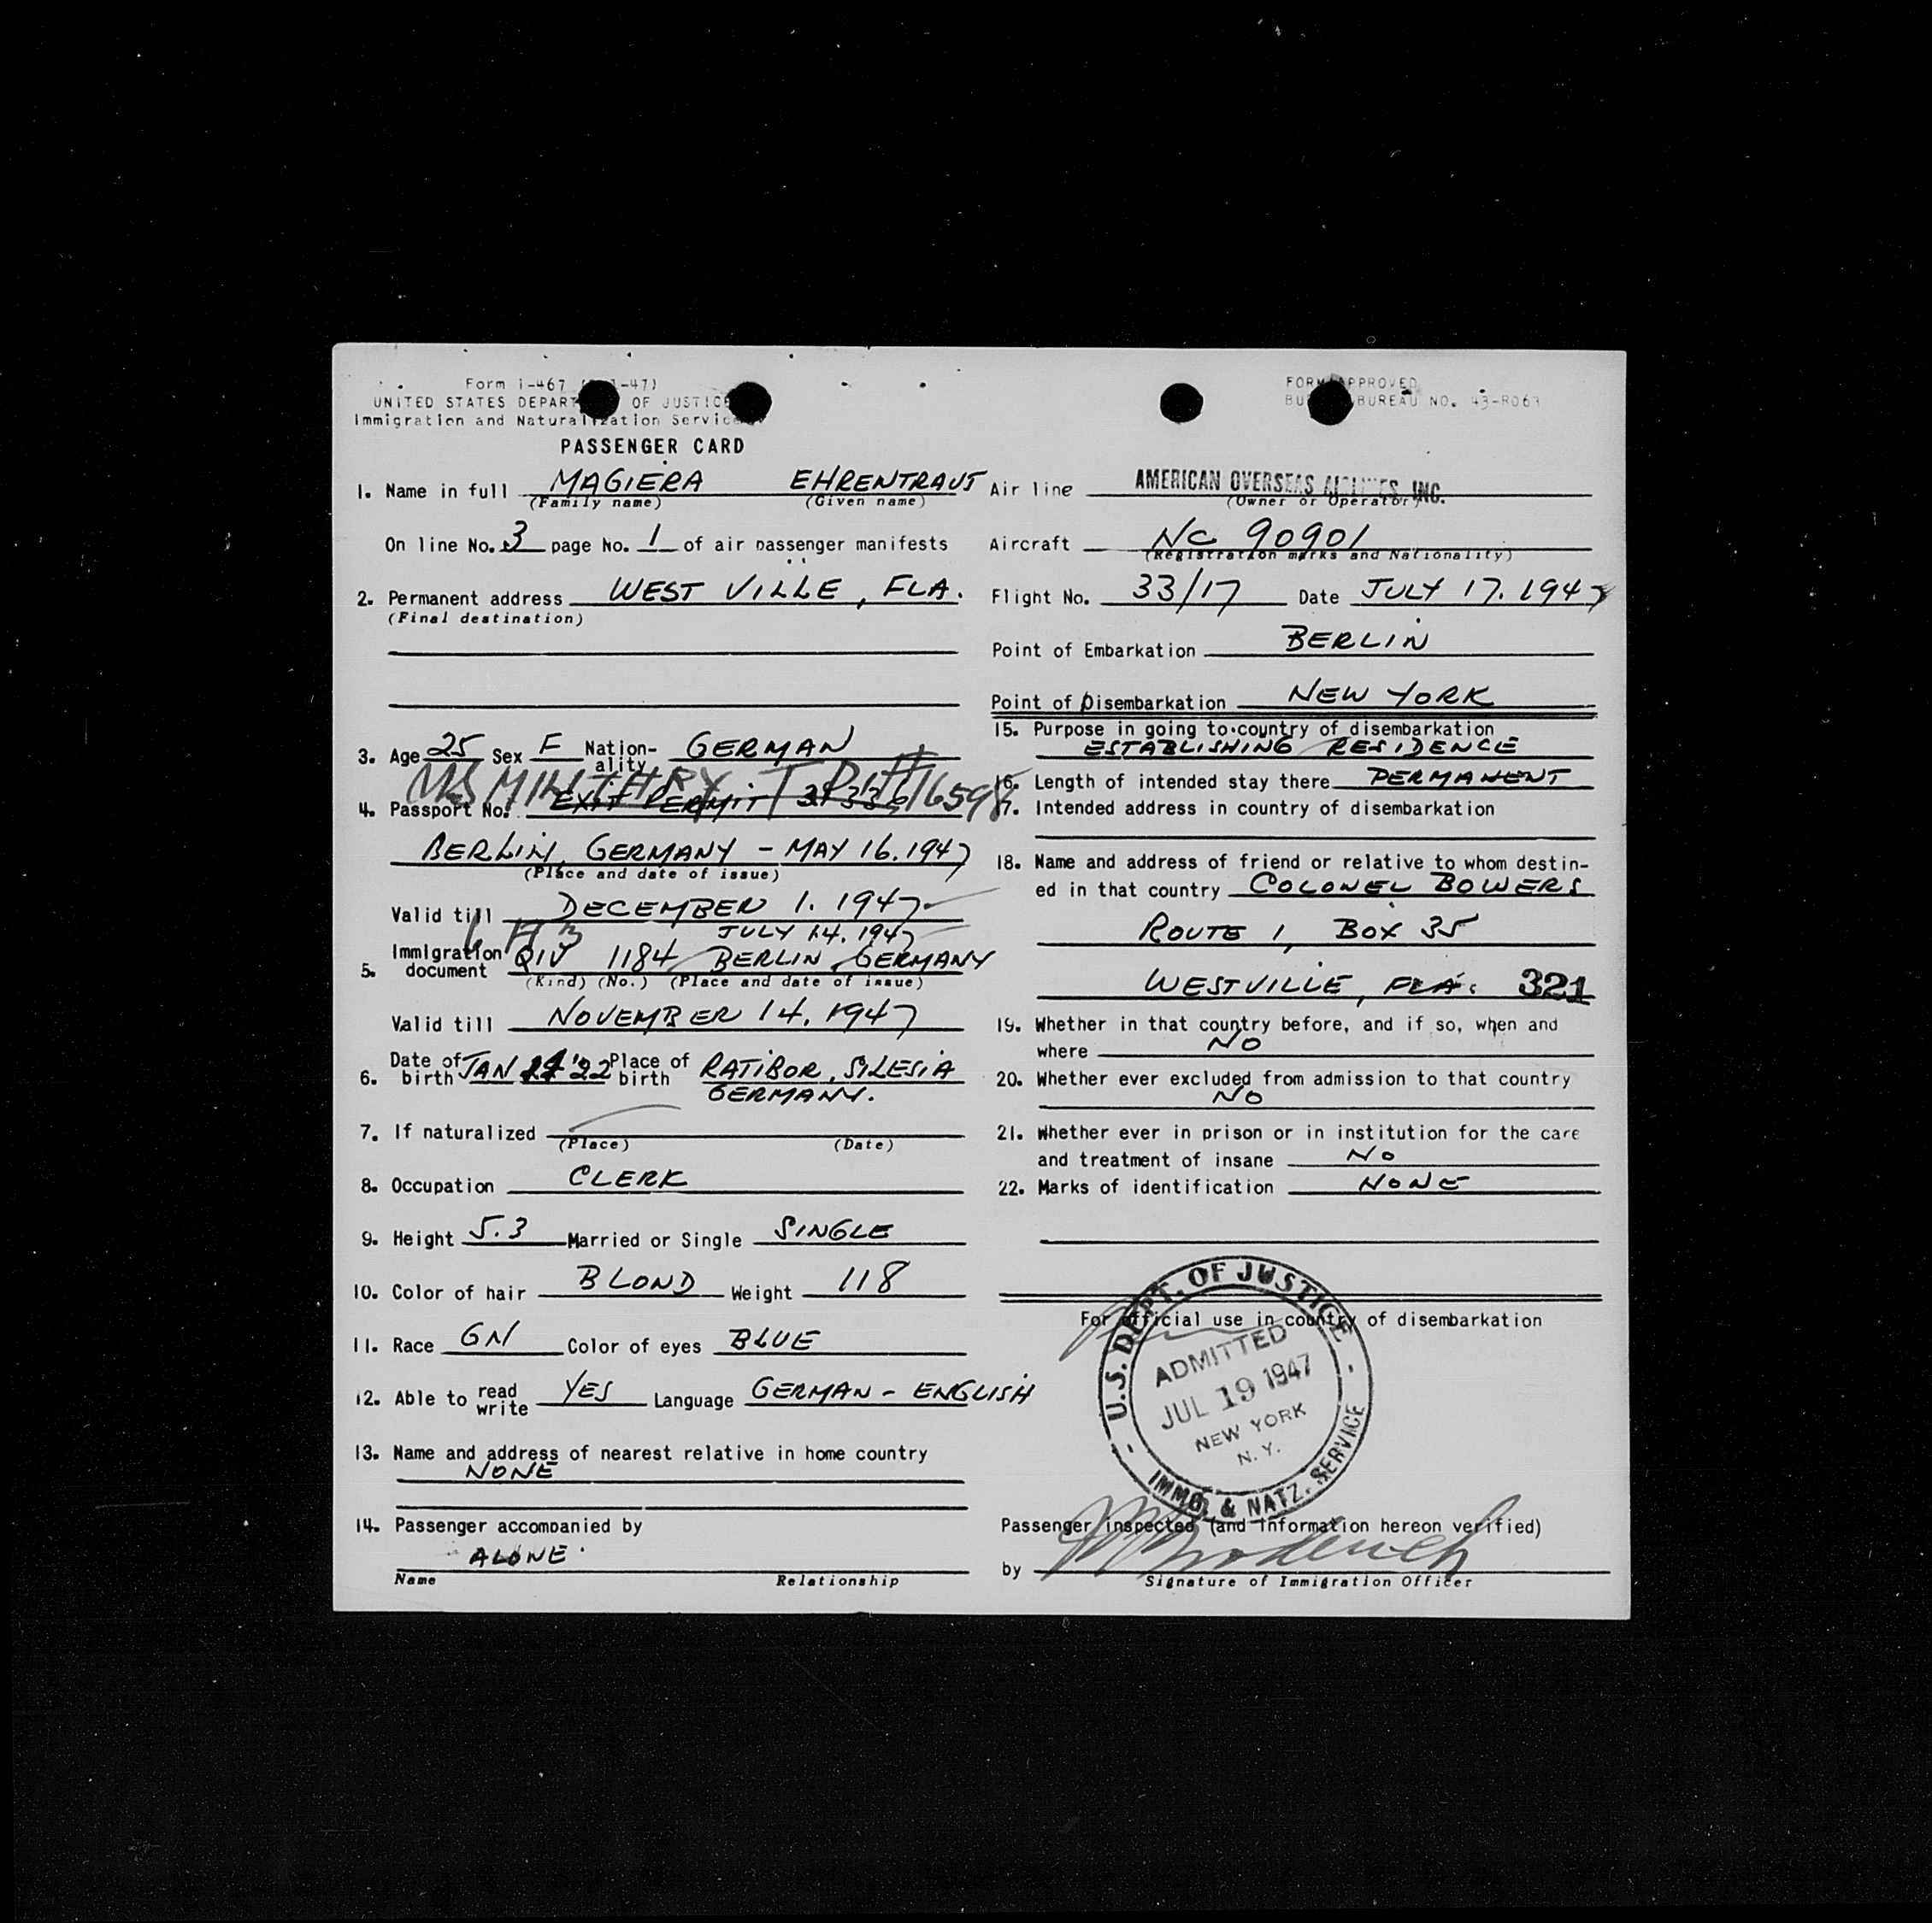 Form I-467 -47)
UNITED STATES DEPART OF JUSTICE
Immigration and Naturalization Service
PASSENGER CARD
1. Name in full MAGIERA EHRENTRAUT
(Family name) (Given name)
On line No. 3 page No. 1 of air passenger manifests
2. Permanent address WEST VILLE, FLA.
(Final destination)
3. Age 25 Sex F Nation-ality GERMAN
MILITARY
4. Passport No. EXIT PERMIT
BERLIN, GERMANY - MAY 16. 1947
(Place and date of issue)
Valid till DECEMBER 1. 1947
JULY 14. 1947
5. Immigration document QIV 1184 BERLIN, GERMANY
(Kind) (No.) (Place and date of issue)
Valid till NOVEMBER 14. 1947
6. Date of birth JAN '22 Place of birth RATIBOR, SILESIA
GERMANY.
7. If naturalized
(Place) (Date)
8. Occupation CLERK
9. Height 5.3 Married or Single SINGLE
10. Color of hair BLOND Weight 118
11. Race GN Color of eyes BLUE
12. Able to read write YES Language GERMAN - ENGLISH
13. Name and address of nearest relative in home country
NONE
14. Passenger accompanied by
ALONE
Name Relationship
FORM APPROVED
BUREAU NO. 43-R063
Air line AMERICAN OVERSEAS AIRLINES, INC.
(Owner or Operator)
Aircraft NC 90901
(Registration marks and Nationality)
Flight No. 33/17 Date JULY 17. 1947
Point of Embarkation BERLIN
Point of Disembarkation NEW YORK
15. Purpose in going to country of disembarkation
ESTABLISHING RESIDENCE
16. Length of intended stay there PERMANENT
17. Intended address in country of disembarkation
18. Name and address of friend or relative to whom destin-
ed in that country COLONEL BOWERS
ROUTE 1, BOX 35
WESTVILLE, FLA. 321
19. Whether in that country before, and if so, when and
where NO
20. Whether ever excluded from admission to that country
NO
21. Whether ever in prison or in institution for the care
and treatment of insane NO
22. Marks of identification NONE
For official use in country of disembarkation
U.S. DEPT. OF JUSTICE
ADMITTED
JUL 19 1947
NEW YORK
N. Y.
IMMG. & NATZ. SERVICE
Passenger inspected (and information hereon verified)
by
Signature of Immigration Officer